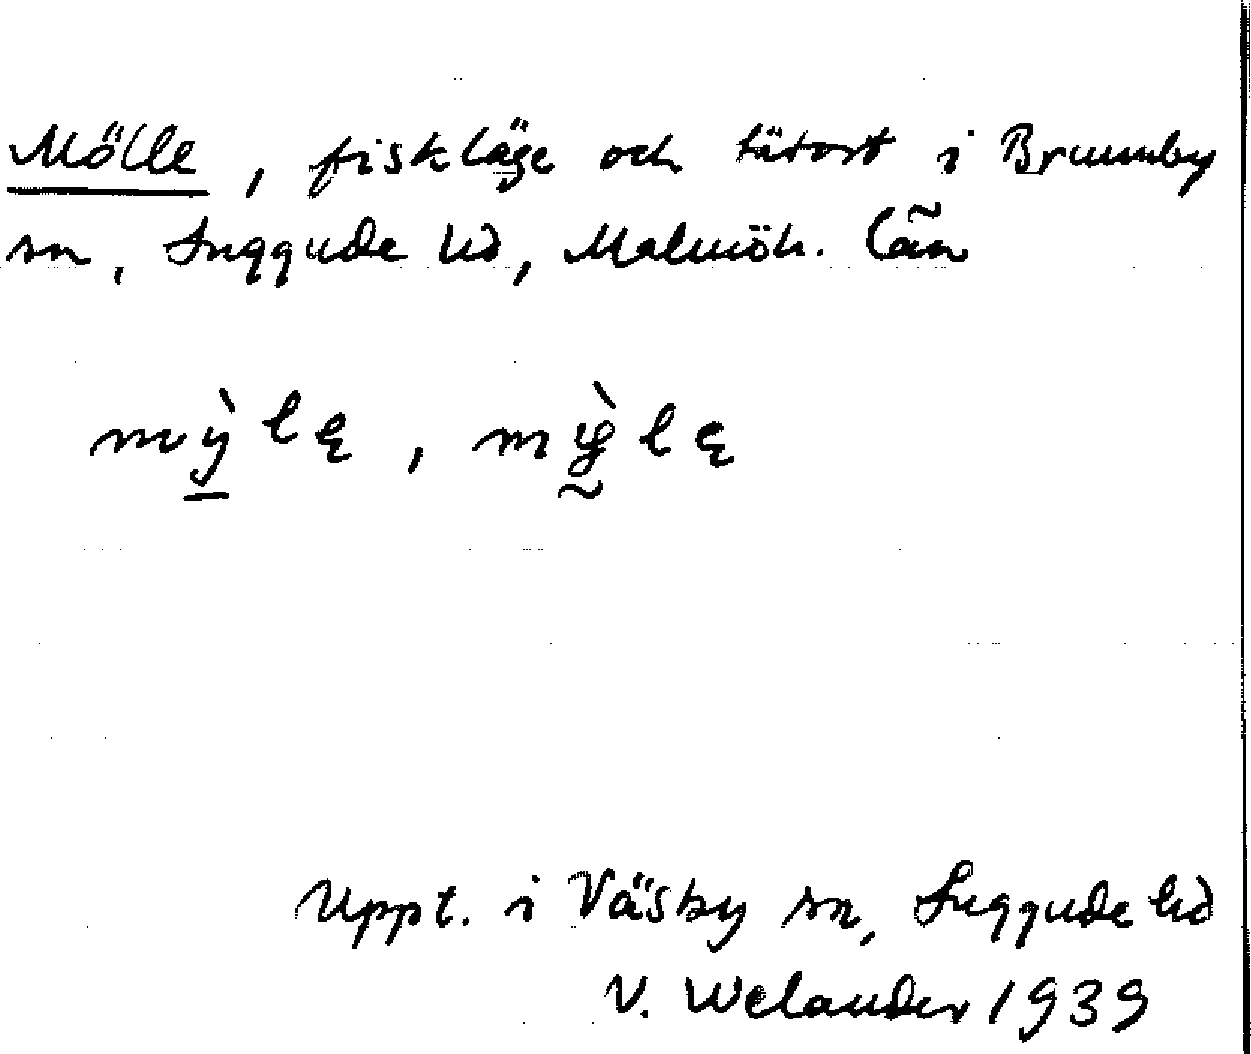 Mölle, fiskläge och tätort i Brunnby
sn, Luggude hd, Malmöh. län
mỳ̠lę, mỳ̰lę
Uppt. i Väsby sn, Luggude hd
V. Welander 1939